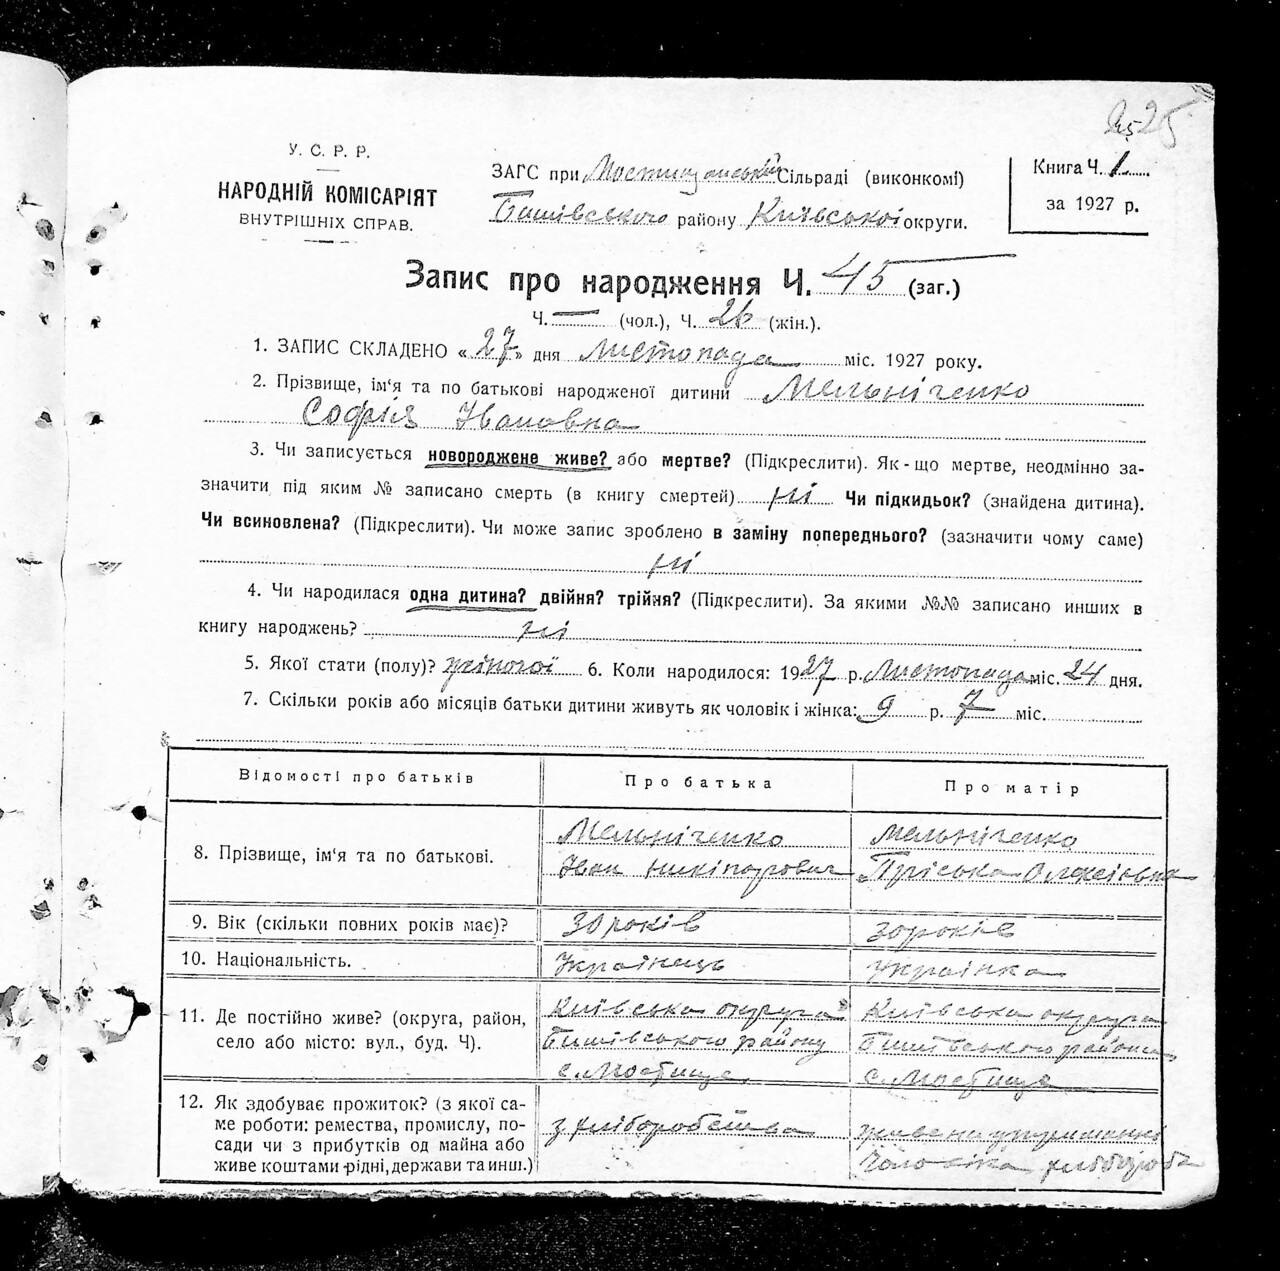 25
У. С. Р. Р.
НАРОДНІЙ КОМІСАРІЯТ
ВНУТРІШНІХ СПРАВ.
ЗАГС при Мостищанській Сільраді (виконкомі)
Бишівського району Київської округи.
Книга Ч. 1
за 1927 р.
Запис про народження Ч. 45 (заг.)
Ч. — (чол.), Ч. 26 (жін.).
1. ЗАПИС СКЛАДЕНО «27» дня Листопада міс. 1927 року.
2. Прізвище, ім‘я та по батькові народженої дитини Мельніченко
Софія Івановна
3. Чи записується новороджене живе? або мертве? (Підкреслити). Як-що мертве, неодмінно за-
значити під яким № записано смерть (в книгу смертей) ні Чи підкидьок? (знайдена дитина).
Чи всиновлена? (Підкреслити). Чи може запис зроблено в заміну попереднього? (зазначити чому саме)
ні
4. Чи народилася одна дитина? двійня? трійня? (Підкреслити). За якими №№ записано инших в
книгу народжень? ні
5. Якої стати (полу)? жіночої 6. Коли народилося: 1927 р. Листопада міс. 24 дня.
7. Скільки років або місяців батьки дитини живуть як чоловік і жінка: 9 р. 7 міс.
Відомості про батьків
Про батька
Про матір
8. Прізвище, ім‘я та по батькові.
Мельніченко
Іван Никіпорович
Мельніченко
Пріська Олексіївна
9. Вік (скільки повних років має)?
30 років
30 років
10. Національність.
Українець
Українка
11. Де постійно живе? (округа, район,
село або місто: вул., буд. Ч).
Київська округа
Бишівського району
с. Мостище
Київська округа
Бишівського района
с. Мостище
12. Як здобуває прожиток? (з якої са-
ме роботи: ремества, промислу, по-
сади чи з прибутків од майна або
живе коштами рідні, держави та инш.)
з хліборобства
живе на утриманні
чоловіка хлібороба